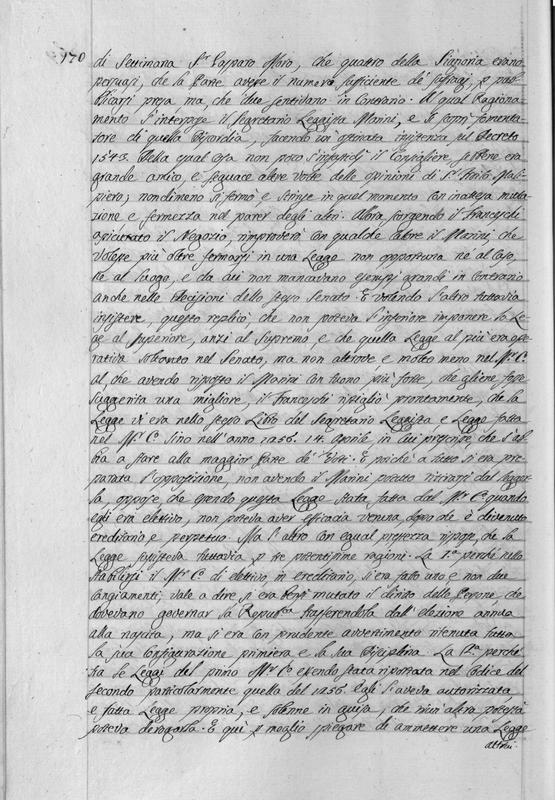 170
di Settimana Sr. Gasparo Moro, che quattro della Signoria erano
persuasi, che la Parte avere il numero sufficiente de' suffragj, p pub-
blicarsi presa ma, che due sentivano in Contrario. Al qual Ragiona-
mento s'interpose il Segretario Leggista Marini, e si scoprì fomenta-
tore di quella Discordia, facendo un'ostinata insistenza sul Decreto
1573. Della qual cosa non poco il Consigliere, sebbene era
grande amico, e seguace altre volte delle opinioni di Sr. Mali-
piero; nondimeno si fermò e strinse in quel momento con inattesa muta-
zione e fermezza nel parer degli altri. Allora sorgendo il Franceschi
il Negozio, rimproverò con qualche calore il Marini, che
volesse più oltre fermarsi in una Legge non opportuna nè al Caso,
nè al Luogo, e da cui non mancavano esempj grandi in contrario
anche nelle decisioni dello stesso Senato. E volendo l'altro tuttavia
insistere, questo replicò, che non poteva l'inferiore imponere la Le-
ge al Superiore, anzi al Supremo e che quella Legge al più era ope-
rativa soltanto nel Senato, ma non altrove e molto meno nel Mr. C.
al, che avendo risposto il Marini con tuono più forte, che gliene fosse
suggerita una migliore, il Franceschi ripigliò prontamente, che la
Legge vi era nello stesso Libro del Segretario Leggista e Legge fatta
nel Mr. C. sino nell'anno 1256. 14. Aprile, in cui prescrive, che s'ab-
bia a stare alla maggior Parte de' Voti. E poichè a tutto si era pre-
parata l'opposizione, non avendo il Marini potuto ritirarsi dal
la oppose che essendo questa Legge stata fatta dal Mr. C. quando
egli era elettivo, non poteva aver efficacia veruna, dopo che è divenuto
ereditario e perpetuo. Ma l'altro con egual prestezza rispose, che la
Legge sussisteva tuttavia, p tre potentissime ragioni. La 1a. perchè nello
stabilirsi il Mr. C. di elettivo, in ereditario, si era fatto uno e non due
cangiamenti, vale a dire si era mutato il diritto delle Persone, che
dovevano governar la Repubca. trasferendola dall'elezione annua
alla nascita, ma si era con prudente avvertimento ritenuta tutta
la sua Configurazione primiera e la sua Disciplina. La perchè
tra le Leggi del primo Mr. C. essendo stata riportata nel Codice del
secondo particolarmente quella del 1256. egli l'aveva autorizzata
e fatta Legge propria, e solenne in guisa, che niun'altra potestà
poteva derogarla. E qui p meglio spiegare di ammettere una Legge
altrui